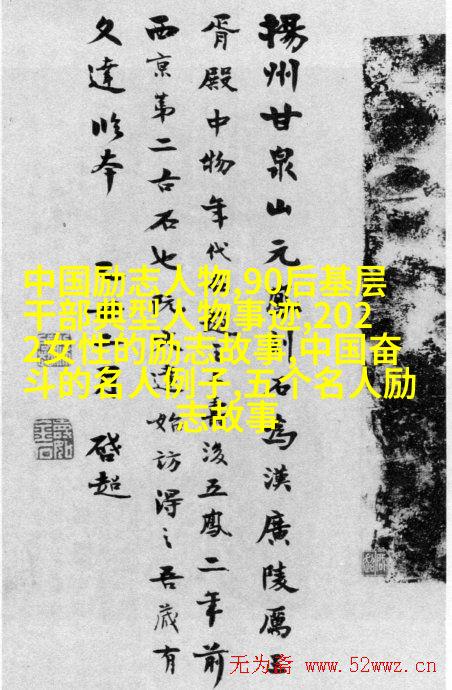 揚州甘泉山元刻石為漢廣陵厲王
胥殿中物年代後五鳳二年前
西京第二古石也阮達始訪得之吾藏有
文達臨本
啓超
中国励志人物,90后基层
干部典型人物事迹,202
2女性的励志故事,中国奋
斗的名人例子,五个名人励
志故事
无为斋 www.52wwz.cn